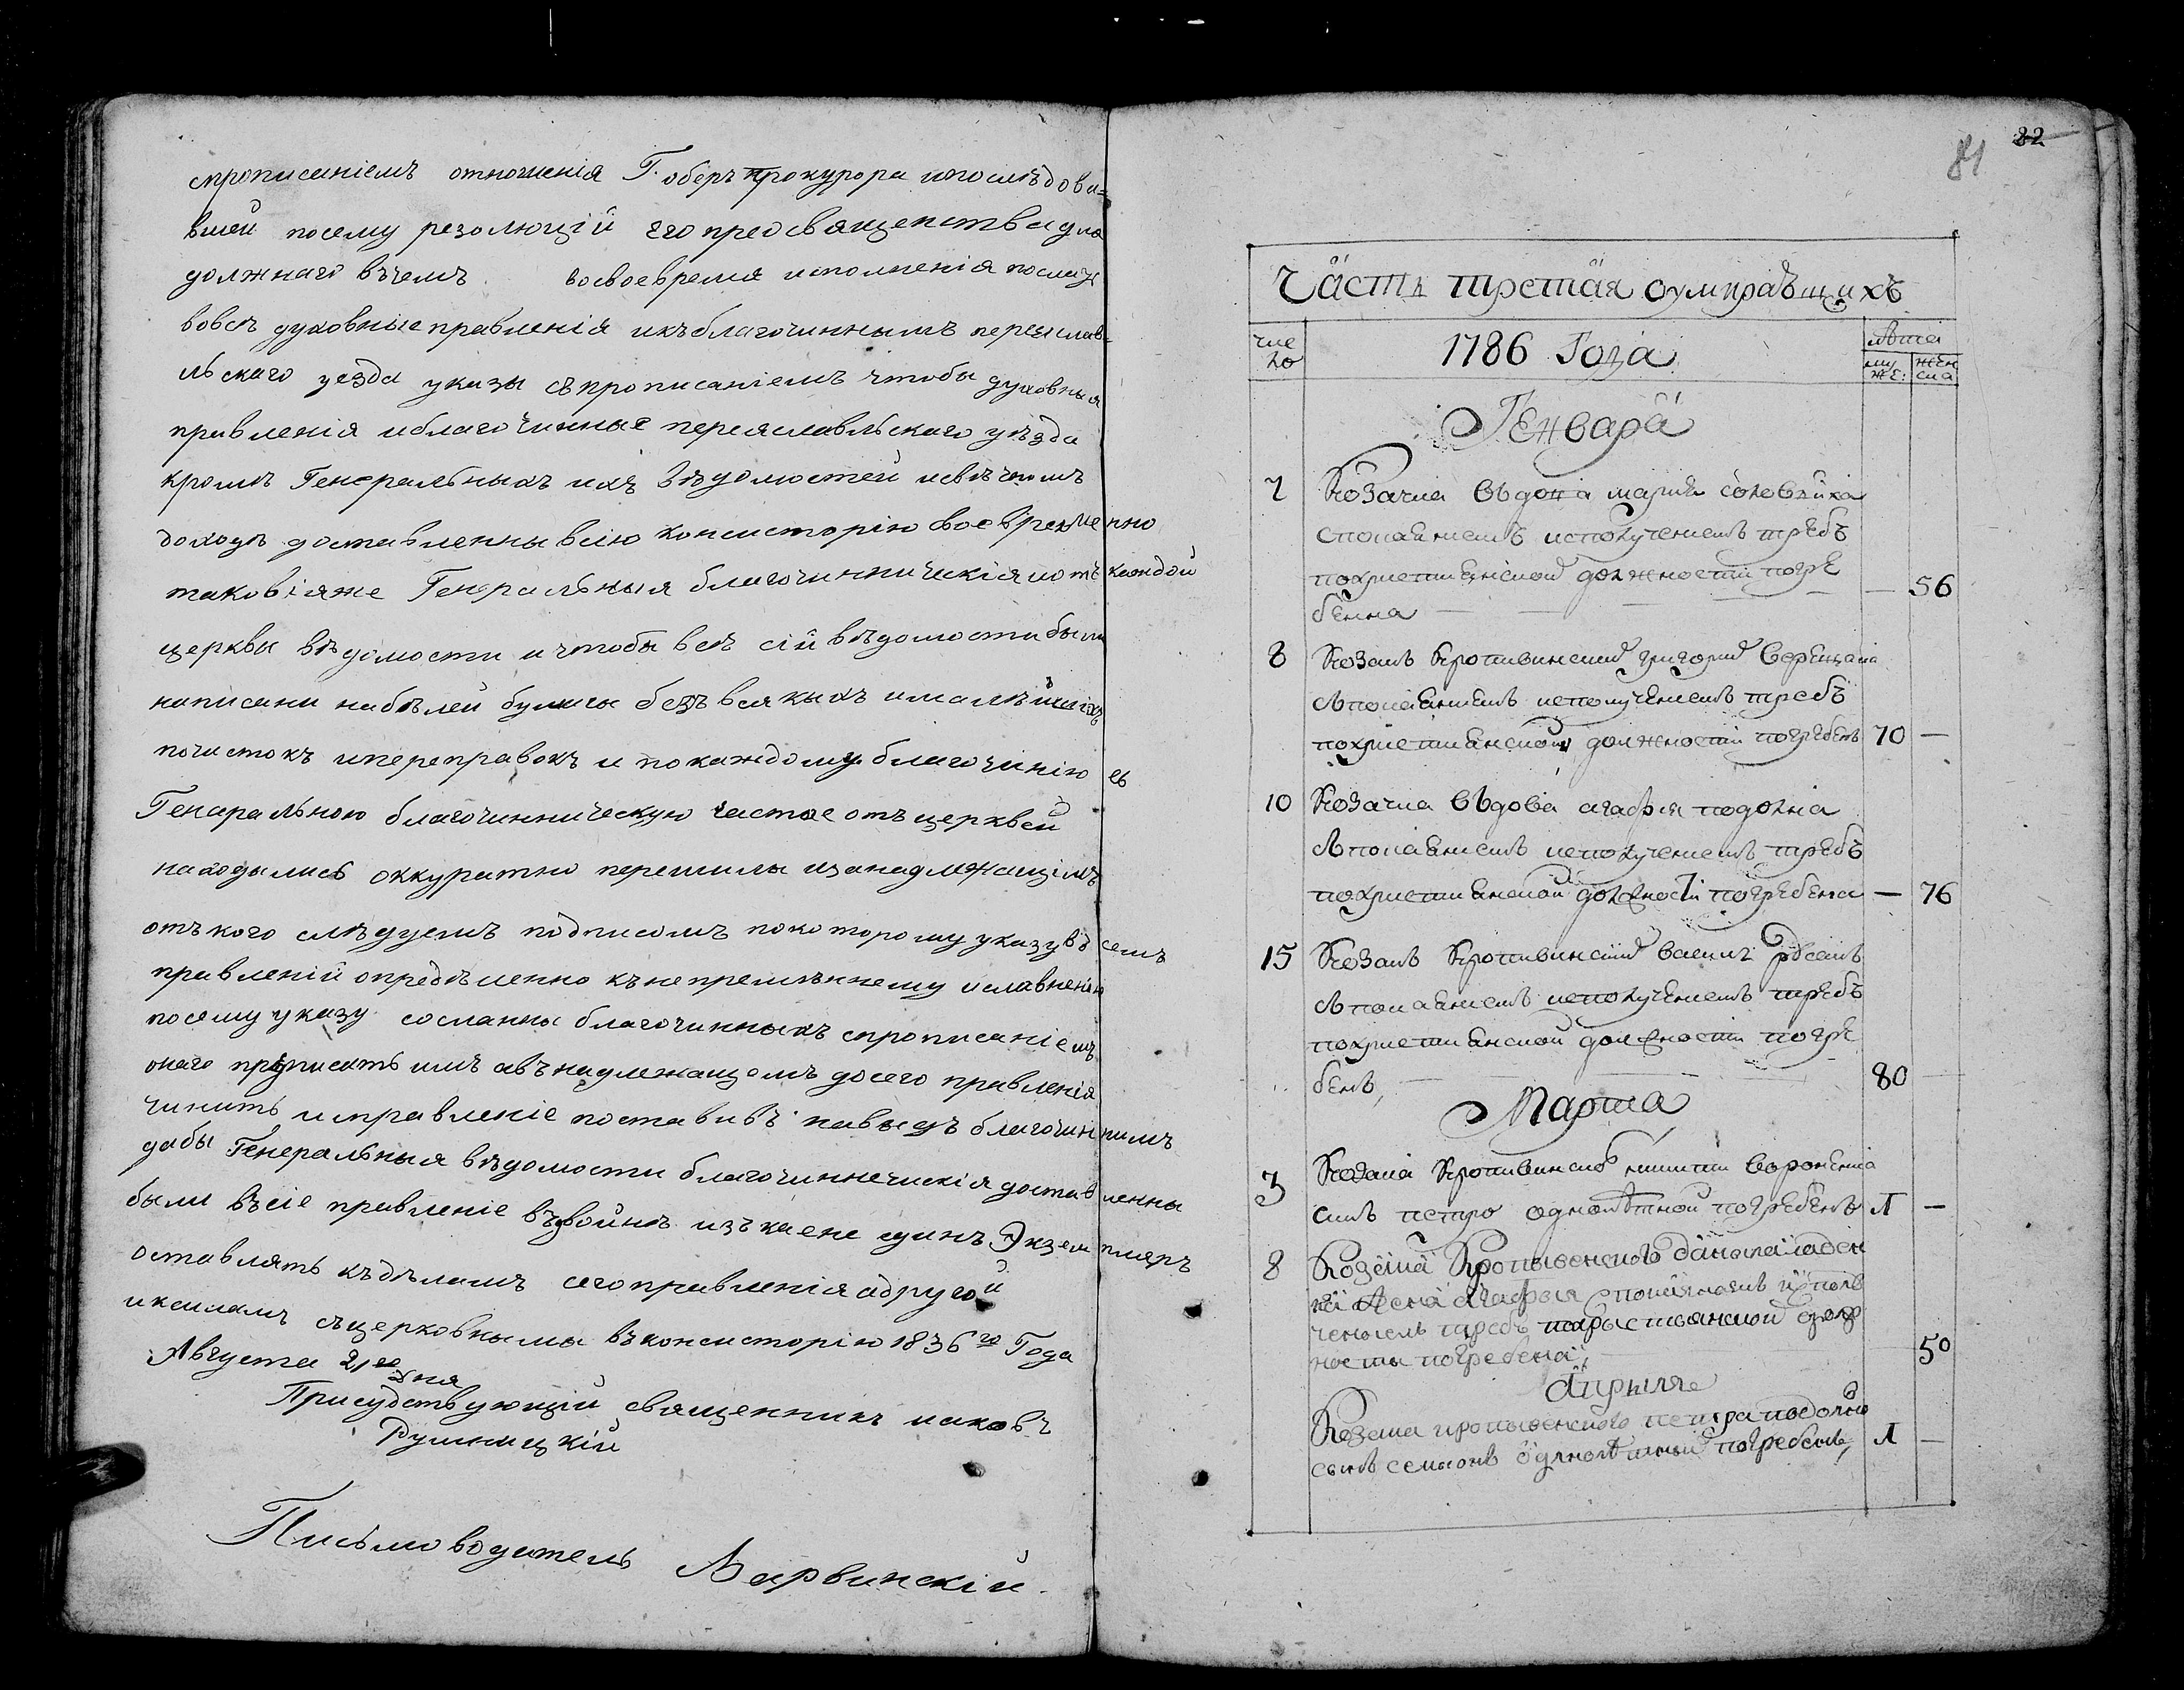 спрописаніемъ отношенія Г. оберъ прокурора ипослѣдова=
вшей посему резолюціи его преосвященства для
должнаго вчемъ восвоевремя исполненія послать
вовсѣ духовніе правленія икъблагочиннымъ переяслав=
льскаго уезда указы съпрописаніемъ чтобы духовныя
правленія иблагочинные переяславльскаго уѣзда
кромѣ Генеральныхъ ихъ вѣдомостей исвѣчномъ
доходѣ доставленны всію консисторію своевременно
таковіяже Генеральныя благочинническія иотъ каждой
церквы вѣдомости и чтобы всѣ сіи вѣдомости были
написани набѣлей бумагы безъ всякыхъ ималѣйшихъ
почистокъ ипереправокъ и покаждому благочинію
Генеральною благочинническую частые отъ церквей
находылись оккуратно перешиты изанадлежащимъ
отъ кого слѣдуетъ подписомъ покоторому указу въ семъ
правленіи опредѣленно кънепремѣнному
посему указу благочинныхъ спрописаніемъ
онаго предписать имъ авънадлежащемъ досего правленія
чинить исправленіе поставивъ навыдъ благочиннимъ
дабы Генеральныя вѣдомости благочинническія доставленны
были въсіе правленіе въдвойнѣ изъ коихъ одинъ Экземпляръ
оставлять къдѣламъ сего правленія адругой
съцерковнымы въконсисторію 1836го Года
Августа 21го дня
Присудствующій священникъ иаковъ
Румницкій
Письмоводитель Марвинскій.
81 82
Часть третая оумиравшихъ
чис
ло
1786 Года
лѣта
му
же:
жен
ска
Генвара
7 Козачка вьдова мария соловѣиха
споканиемъ исполучениемъ требъ
похристиянской должности погре
бенна — — 56
8 Козакъ Кропивинский григорий Верещака
съпоканиемъ исполучениемъ требъ
похристиянской должности погребенъ 70 —
10 Козачка вьдова агафия подолка
съпоканиемъ исполучениемъ требъ
похристиянской должности погребена — 76
15 Козакъ Кропивинский василь
съпоканиемъ исполучениемъ требъ
похристиянской должности погре
бенъ, 80
Марта
3 Козака Кропивинского никити Вороненка
синъ петро однолѣтной погребенъ Л —
8 Козака Кропивенского данила
жена Агафия споканиемъ исполу
чениемъ требъ похрыстиянской долж
ности погребена, 50
Априля
Козака кропивенского петра подолно
сынъ семионъ однолѣтний погребенъ, Л —